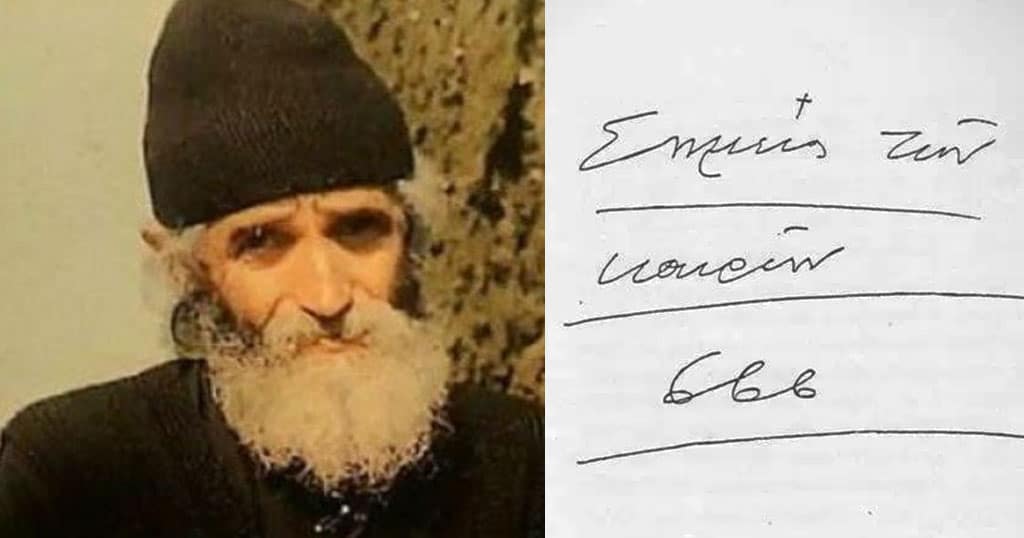 Σημεῖα τῶν
καιρῶν
666